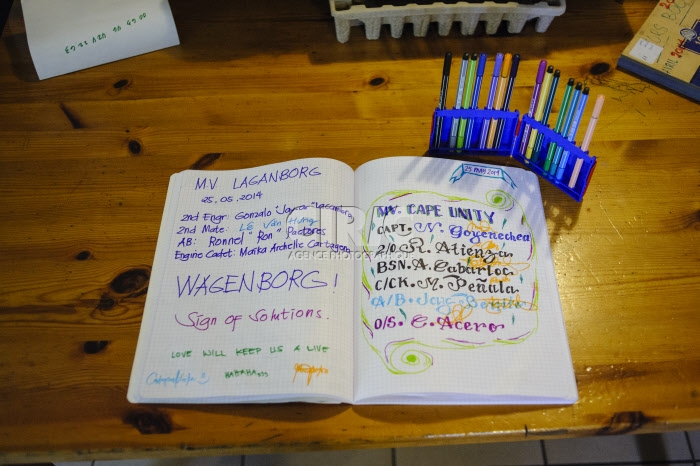 MV LAGANBORG
25.05.2014
2nd Engr: Gonzalo "Jaycor" Lacanaria
2nd Mate: Lê Văn Hưng
AB: Ronnel "Ron" Pactores
Engine Cadet: Marka Archelle Cartagena
WAGENBORG!
Sign of Solutions.
LOVE WILL KEEP US A LIVE
HAHAHA
25 MAY 2014
MV. CAPE UNITY
CAPT. N. Goyenechea
2/O. R. Atienza
BSN. A. Cabarloc
C/CK. M. Peñula
A/B.
O/S. C. Acero
AGENCE PHOTOGRAPHIQUE